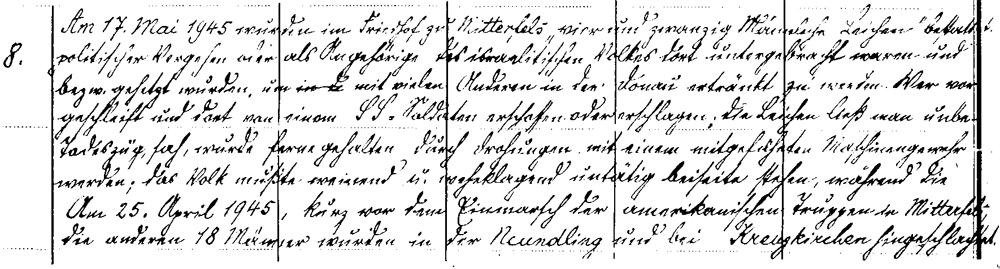 Am 17. Mai 1945 wurden im Friedhof zu Mitterfels „vier und zwanzig Männliche Leichen" bestattet.
8. politischer Vergehen oder als Angehörige des israelitischen Volkes dort untergebracht waren und
bezw. gehetzt wurden, um in d mit vielen Anderen in der Donau ertränkt zu werden. Wer vor
geschleift und dort von einem SS-Soldaten erschossen oder erschlagen, die Leichen ließ man unbe-
Todeszug sah, wurde ferne gehalten durch Drohungen mit einem mitgeführten Maschinengewehr
werden; das Volk mußte weinend u. wehklagend untätig beiseite stehen, während die
Am 25. April 1945, kurz vor dem Einmarsch der amerikanischen Truppen in Mitterfels,
die anderen 18 Männer wurden in der Neundling und bei Kreuzkirchen hingeschlachtet.